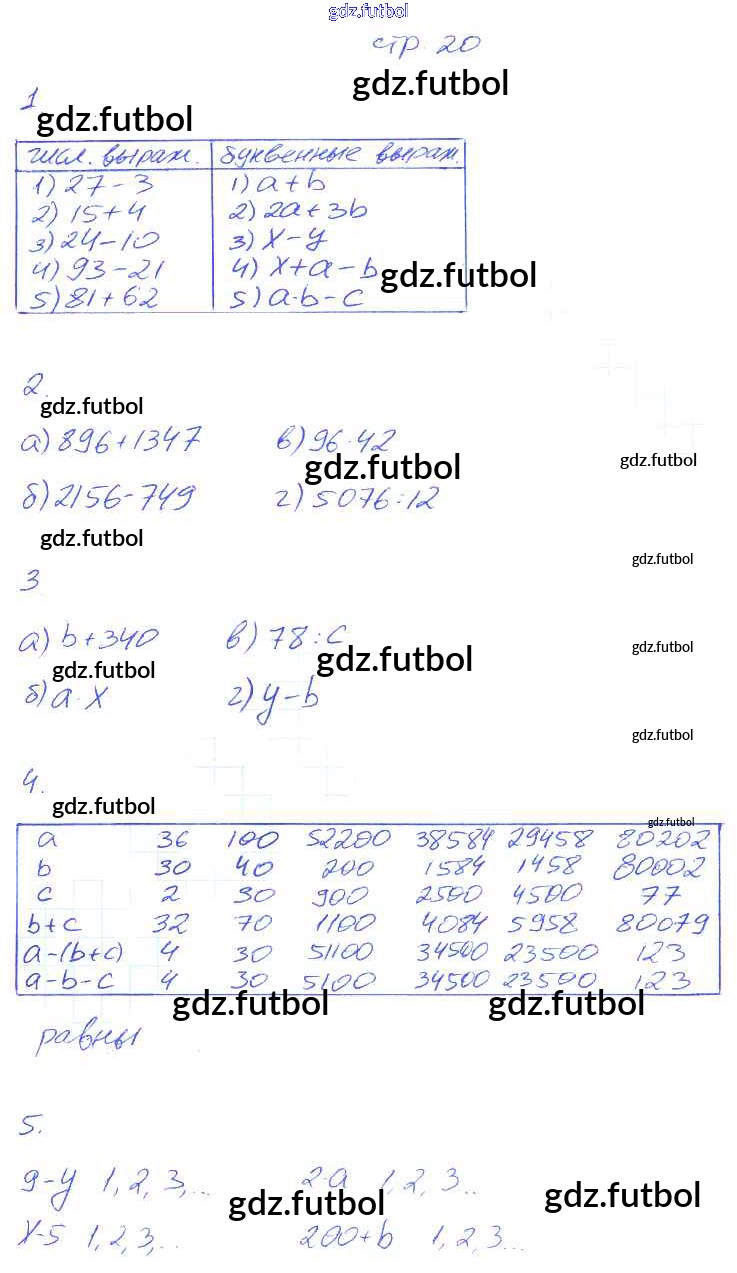 gdz.futbol
стр. 20
gdz.futbol
1
gdz.futbol
числ. выраж. буквенные выраж.
1) 27-3 1) a+b
2) 15+4 2) 2a+3b
3) 24-10 3) x-y
4) 93-21 4) x+a-b
gdz.futbol
5) 81+62 5) a·b-c
2.
gdz.futbol
а) 896+1347 в) 96·42
gdz.futbol gdz.futbol
б) 2156-749 г) 5076:12
gdz.futbol
gdz.futbol
3
а) b+340 в) 78:c
gdz.futbol
gdz.futbol gdz.futbol
б) a·x г) y-b
gdz.futbol
4.
gdz.futbol
gdz.futbol
a 36 100 52200 38584 29458 80202
b 30 40 200 1584 1458 80002
c 2 30 900 2500 4500 77
b+c 32 70 1100 4084 5958 80079
a-(b+c) 4 30 51100 34500 23500 123
a-b-c 4 30 5100 34500 23500 123
gdz.futbol gdz.futbol
равны
5.
9-y 1, 2, 3,... 2·a 1, 2, 3..
gdz.futbol gdz.futbol
x-5 1, 2, 3,.. 200+b 1, 2, 3...